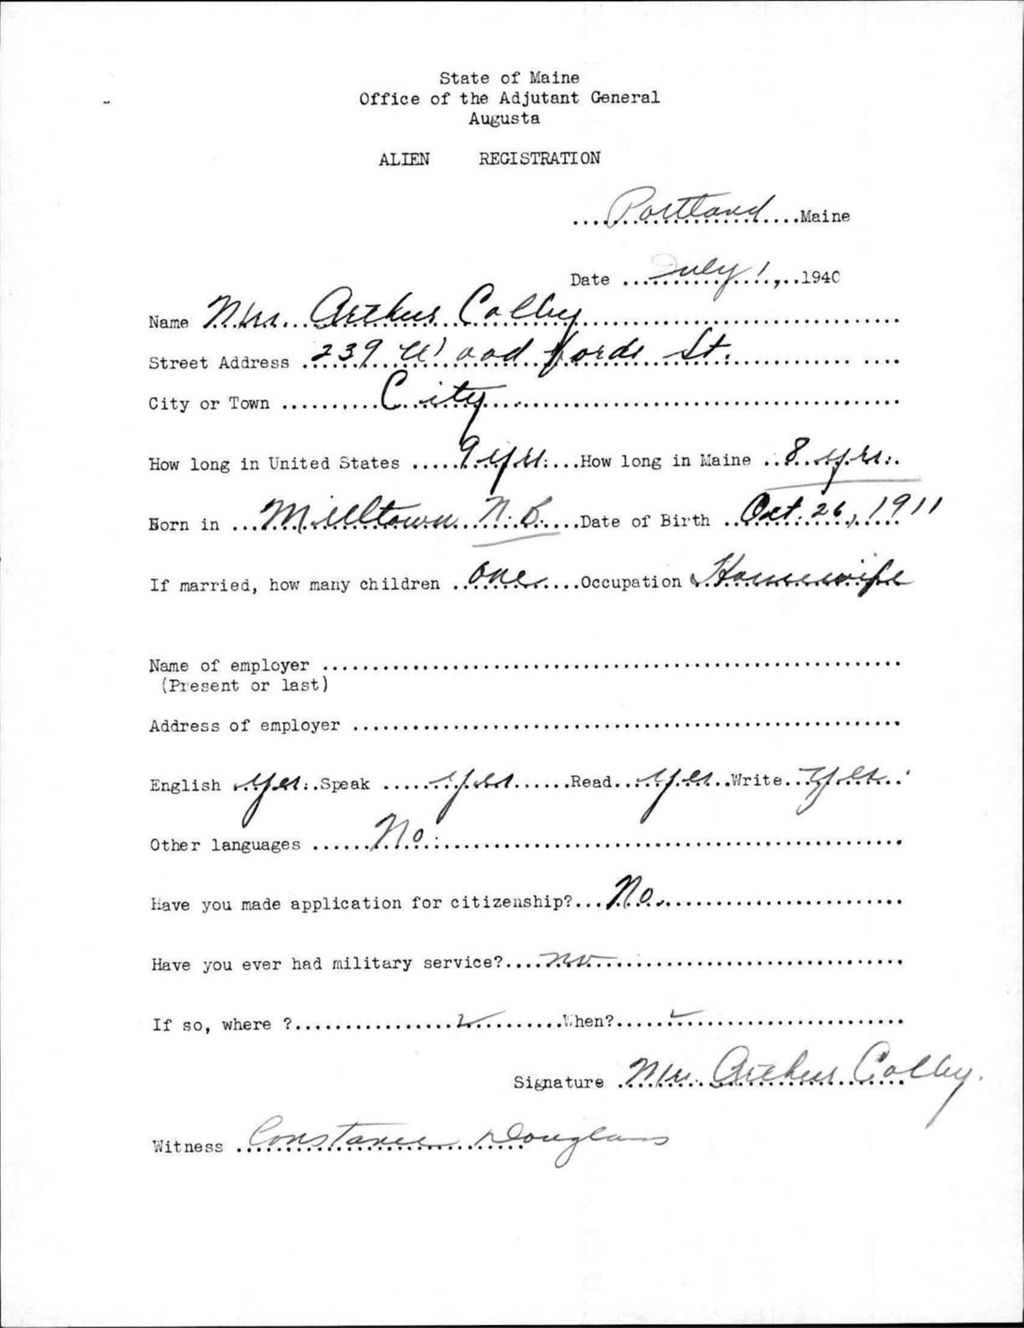 State of Maine
Office of the Adjutant General
Augusta
ALIEN REGISTRATION
....Portland....Maine
Date ...July 1,...1940
Name Mrs. Arthur Colby
Street Address 239 Woodfords St.
City or Town ..........City
How long in United States .....9 yrs....How long in Maine ..8 yrs..
Born in ...Milltown N.B.....Date of Birth ..Oct. 26, 1911
If married, how many children ..one....Occupation Housewife
Name of employer
(Present or last)
Address of employer
English Yes..Speak .....yes......Read...yes..Write..yes..
Other languages ......No.
Have you made application for citizenship?...No.
Have you ever had military service?....no
If so, where ?..........When?......
Signature .Mrs. Arthur Colby.
Witness .Constance Douglass